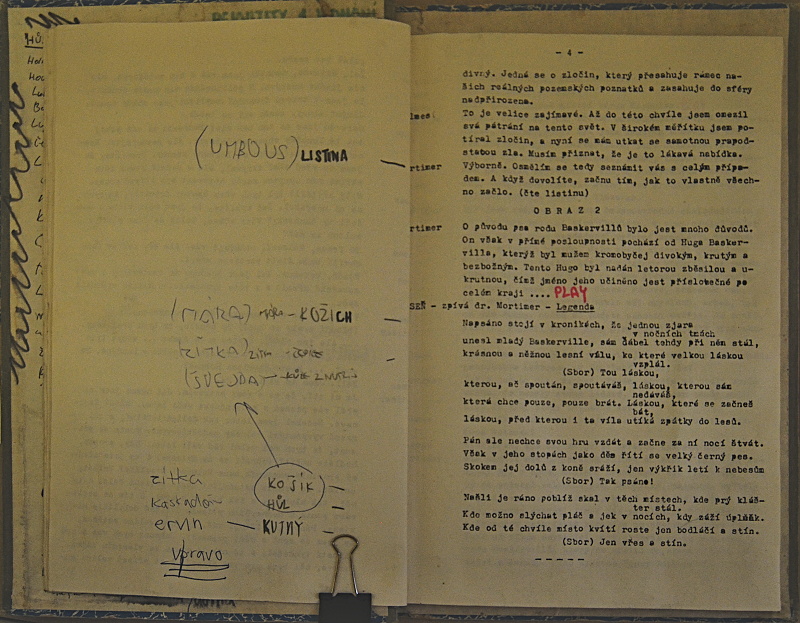 (UMBOUS) LISTINA
(MARA) MARA - KOŽICH
ZÍTKA)
(ŠVEJDA)
zítka
KOJÍK
HŮL
ervín — KUTNÝ
Vpravo
- 4 -
divný. Jedná se o zločin, který přesahuje rámec na-
šich reálných pozemských poznatků a zasahuje do sféry
nadpřirozena.
lmes To je velice zajímavé. Až do této chvíle jsem omezil
svá pátrání na tento svět. V širokém měřítku jsem po-
tíral zločin, a nyní se mám utkat se samotnou prapod-
statou zla. Musím přiznat, že je to lákavá nabídka.
rtimer Výborně. Osmělím se tedy seznámit vás s celým přípa-
dem. A když dovolíte, začnu tím, jak to vlastně všech-
no začlo. (čte listinu)
O B R A Z 2
rtimer O původu psa rodu Baskervillů bylo jest mnoho důvodů.
On však v přímé posloupnosti pochází od Huga Basker-
villa, kterýž byl mužem kromobyčej divokým, krutým a
bezbožným. Tento Hugo byl nadán letorou zběsilou a u-
krutnou, čímž jméno jeho učiněno jest příslotečné po
celém kraji .... PLAY
SEŇ - zpívá dr. Mortimer - Legenda
Napsáno stojí v kronikách, že jednou zjara
v nočních tmách
unesl mladý Baskerville, sám ďábel tehdy při něm stál,
krásnou a něžnou lesní vílu, ke které velkou láskou
vzplál.
(Sbor) Tou láskou,
kterou, ač spoután, spoutáváš, láskou, kterou sám
nedáváš,
která chce pouze, pouze brát. Láskou, které se začneš
bát,
láskou, před kterou i ta víla utíká zpátky do lesů.
Pán ale nechce svou hru vzdát a začne za ní nocí štvát.
Však v jeho stopách jako děs řítí se velký černý pes.
Skokem jej dolů z koně sráží, jen výkřik letí k nebesům
(Sbor) Tak psáno!
Našli je ráno poblíž skal v těch místech, kde prý kláš-
ter stál.
Kde možno slýchat pláč a jek v nocích, kdy září úplněk.
Kde od té chvíle místo kvítí roste jen bodláčí a stín.
(Sbor) Jen vřes a stín.
- - - - -